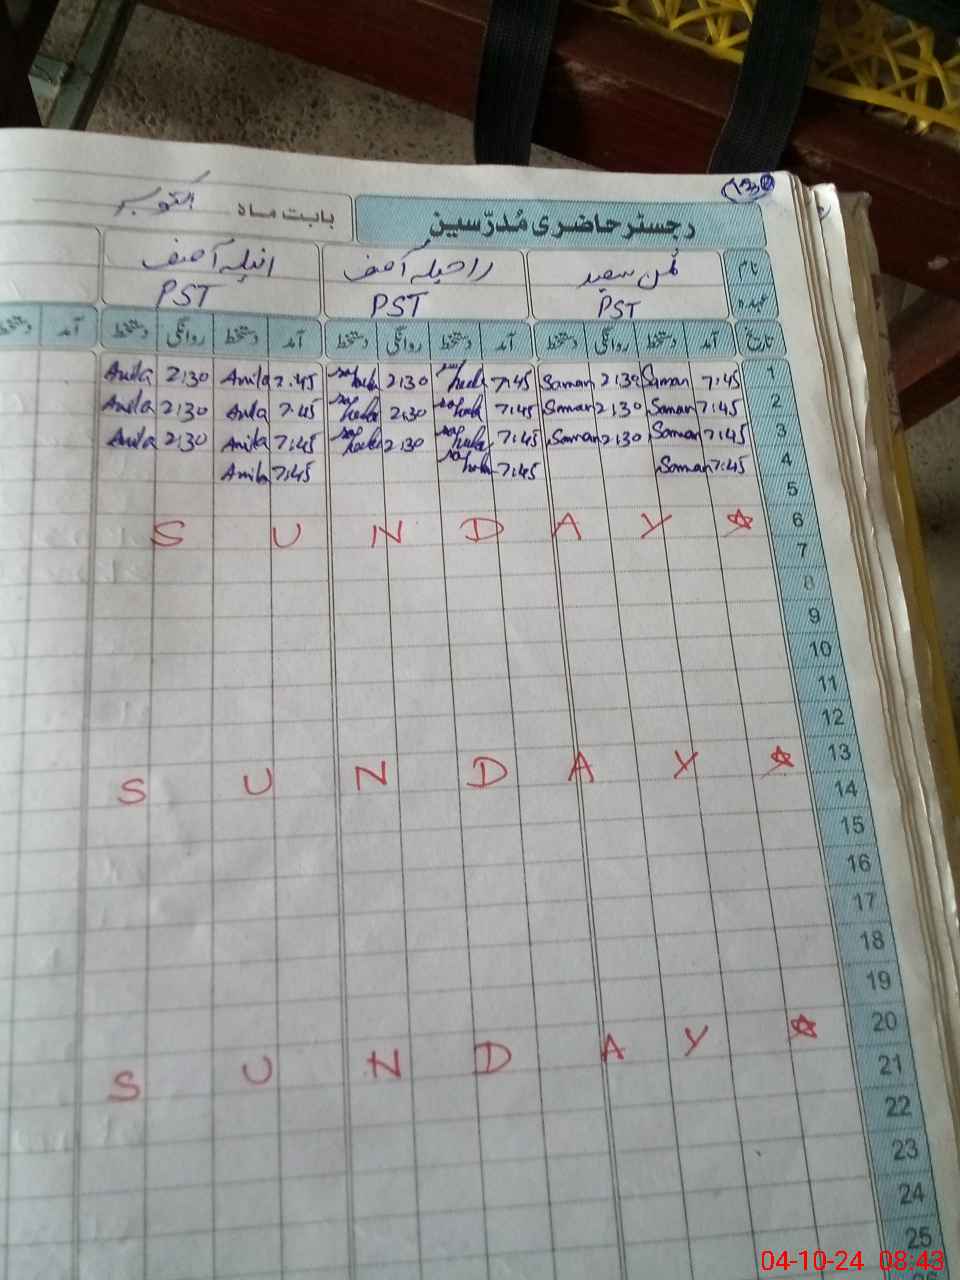 رجسٹر حاضری مُدرّسین بابت ماہ اکتوبر
نام ثمن سعید راحیلہ آصف انیلہ آصف
عہدہ PST PST PST
تاریخ آمد دستخط روانگی دستخط آمد دستخط روانگی دستخط آمد دستخط روانگی دستخط آمد دستخط
Anila 2:30 Anila 7:45 Raheela 2:30 Raheela 7:45 Saman 2:30 Saman 7:45 1
Anila 2:30 Anila 7:45 Raheela 2:30 Raheela 7:45 Saman 2:30 Saman 7:45 2
Anila 2:30 Anila 7:45 Raheela 2:30 Raheela 7:45 Saman 2:30 Saman 7:45 3
Anila 7:45 Raheela 7:45 Saman 7:45 4
5
S U N D A Y 6
7
8
9
10
11
12
S U N D A Y 13
14
15
16
17
18
19
S U N D A Y 20
21
22
23
24
25
04-10-24 08:43